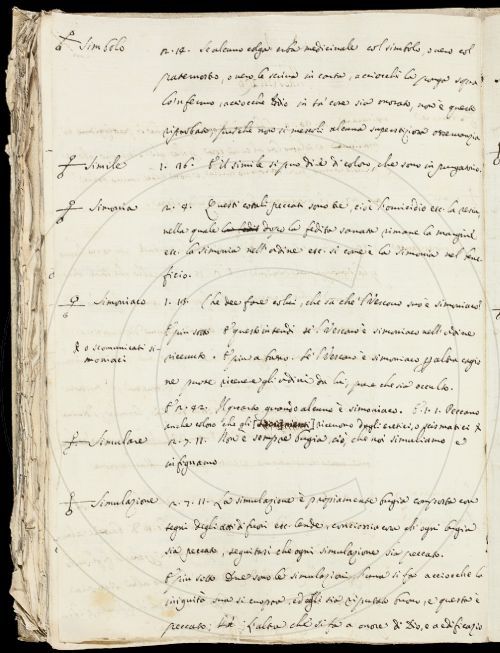 Simbolo 2. 14. Se alcuno colga erba medicinale col simbolo, overo col
paternostro, overo le scriva in carta, acciocchè la ponga sopra
lo infermo, acciocchè Iddio in ta' cose sia onorato, non è questo
rifiutato, purchè non si mescoli alcuna superstizione
Simile 1. 36. E il simile si può dire di coloro, che sono in purgatorio.
Simonia 2. 4. Questi cotali peccati sono tre, cioè l'omicidio etc. la eresia,
nella quale dopo la fedita sanata rimane la margine
etc. la simonia nell'ordine etc. si com'è la simonia nel bene
ficio.
Simoniaco 1. 18. Che dee fare colui, che sa che 'l Vescovo suo è simoniaco?
E più sotto E questo intendi se 'l Vescovo è simoniaco nell'ordine
o scomunicati si-
moniaci
ricevuto. E più a basso. Se 'l Vescovo è simoniaco per altra cagio
ne puote ricevere gli ordini da lui, pure che sia occulto.
E 2. 42. Il quarto quando alcuno è simoniaco. Peccano
anche coloro che gli ricevono dagli eretici, o scismatici
Simulare 2. 7. 11. Non è sempre bugia ciò, che noi simuliamo e
infignamo
Simulazione 2. 7. 11. La simulazione è propiamente bugia composta con
segni degli atti di fuori etc. Onde, conciossia cosa ch'ogni bugia
sia peccato, seguitasi che ogni simulazione sia peccato.
E più sotto Due sono le simulazioni, l'una si fa acciocchè la
iniquità sua si cuopra, ed egli sia riputato buono, e questa è
peccato; l'altra che si fa a onore di Dio, e a edificazio